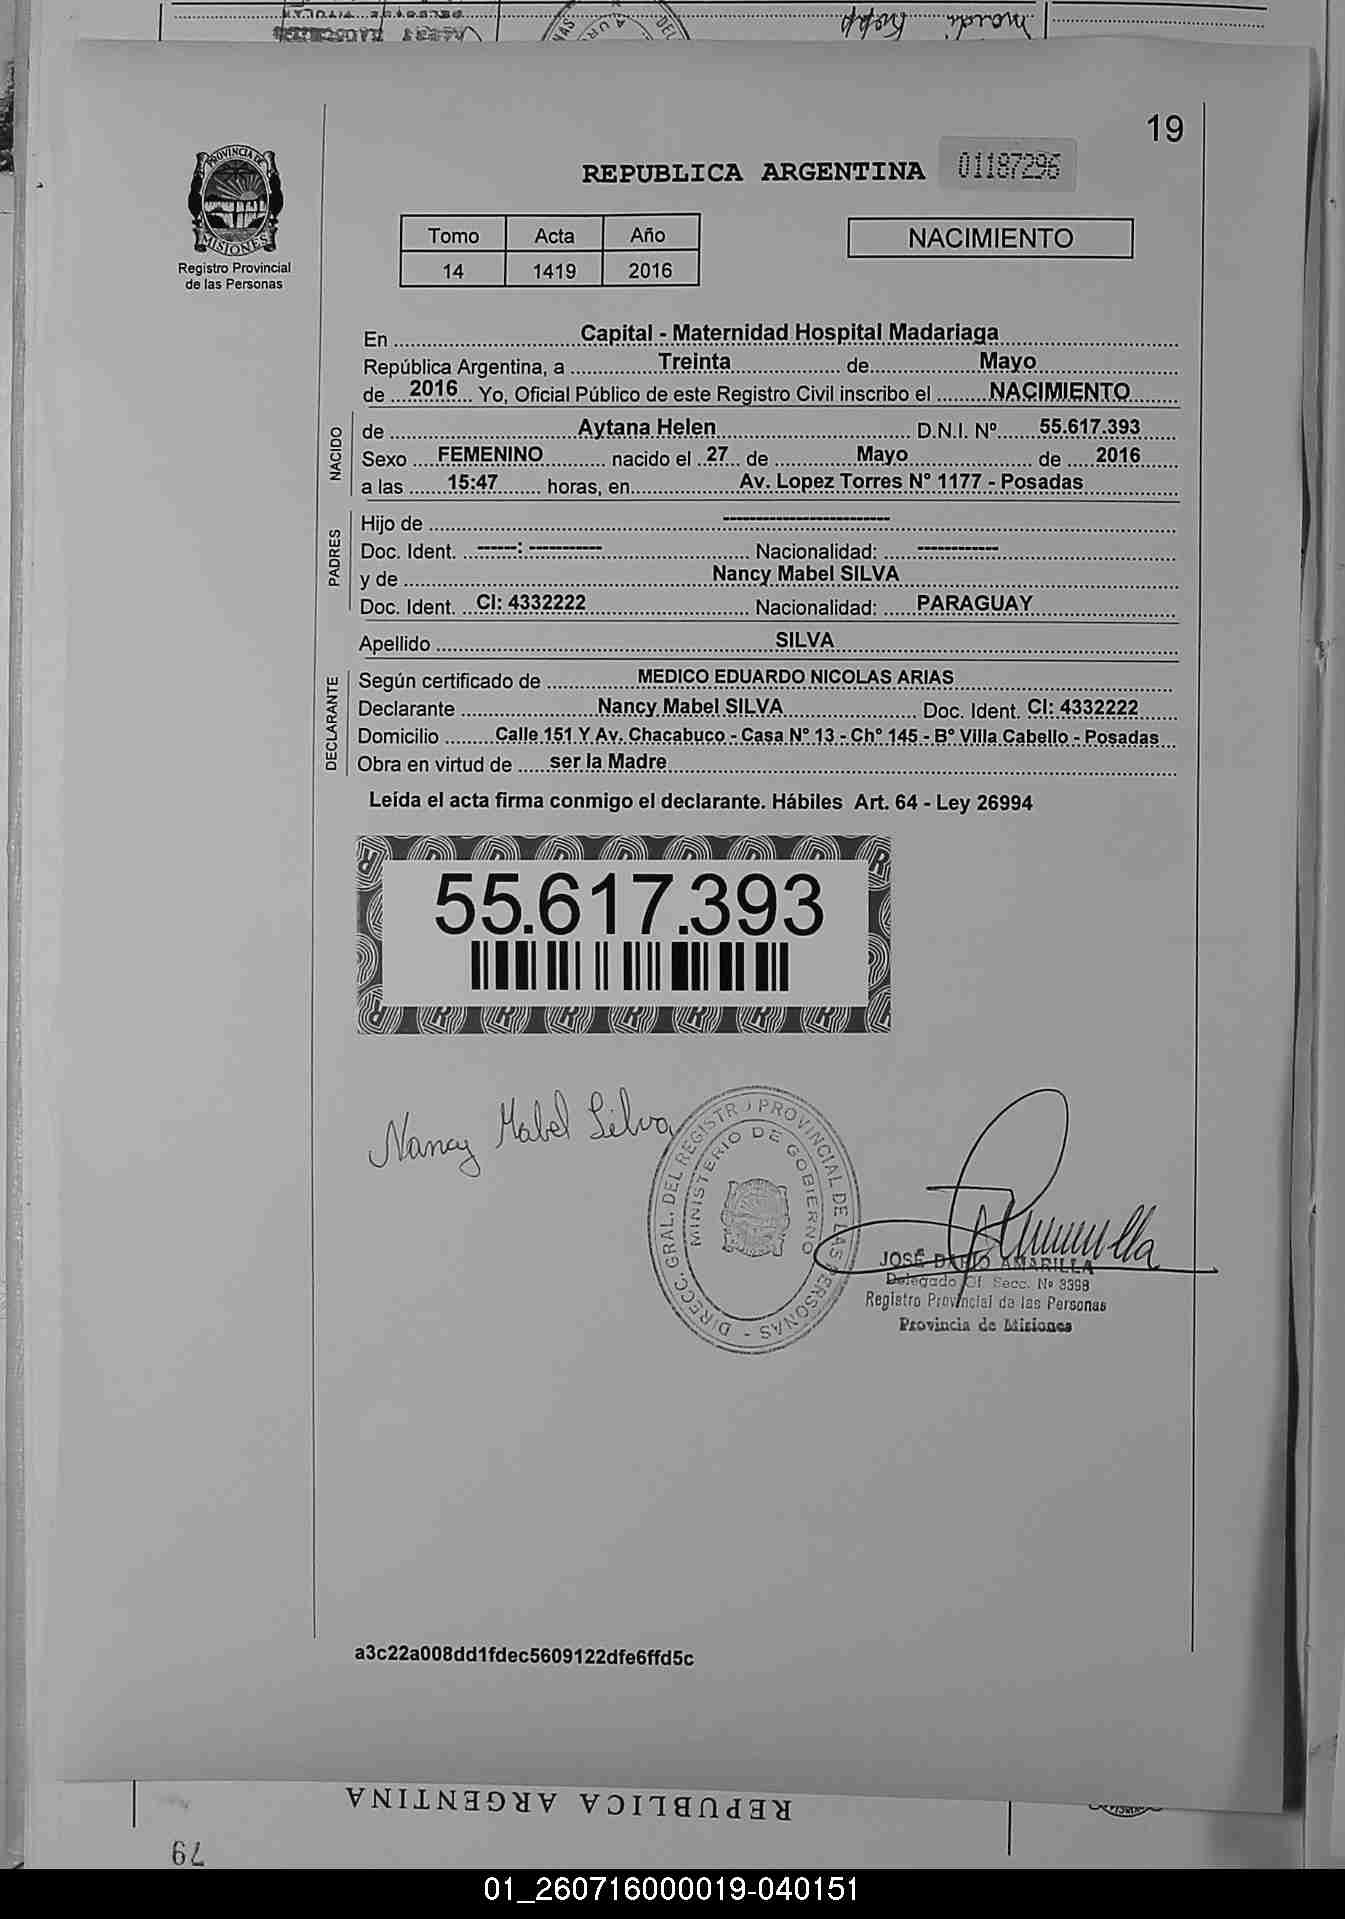 19
REPUBLICA ARGENTINA 01187296
PROVINCIA DE MISIONES
Registro Provincial
de las Personas
Tomo Acta Año
14 1419 2016
NACIMIENTO
En Capital - Maternidad Hospital Madariaga
República Argentina, a Treinta de Mayo
de 2016 Yo, Oficial Público de este Registro Civil inscribo el NACIMIENTO
NACIDO
de Aytana Helen D.N.I. Nº 55.617.393
Sexo FEMENINO nacido el 27 de Mayo de 2016
a las 15:47 horas, en Av. Lopez Torres N° 1177 - Posadas
PADRES
Hijo de ------------------------
Doc. Ident. ------: ----------- Nacionalidad: ------------
y de Nancy Mabel SILVA
Doc. Ident. CI: 4332222 Nacionalidad: PARAGUAY
Apellido SILVA
DECLARANTE
Según certificado de MEDICO EDUARDO NICOLAS ARIAS
Declarante Nancy Mabel SILVA Doc. Ident. CI: 4332222
Domicilio Calle 151 Y Av. Chacabuco - Casa N° 13 - Ch° 145 - B° Villa Cabello - Posadas
Obra en virtud de ser la Madre
Leída el acta firma conmigo el declarante. Hábiles Art. 64 - Ley 26994
55.617.393
Nancy Mabel Silva
DIRECC. GRAL. DEL REGISTRO PROVINCIAL DE LAS PERSONAS -
MINISTERIO DE GOBIERNO
JOSÉ DARIO AMARILLA
Delegado Of. Secc. Nº 3398
Registro Provincial de las Personas
Provincia de Misiones
a3c22a008dd1fdec5609122dfe6ffd5c
REPUBLICA ARGENTINA
79
01_260716000019-040151